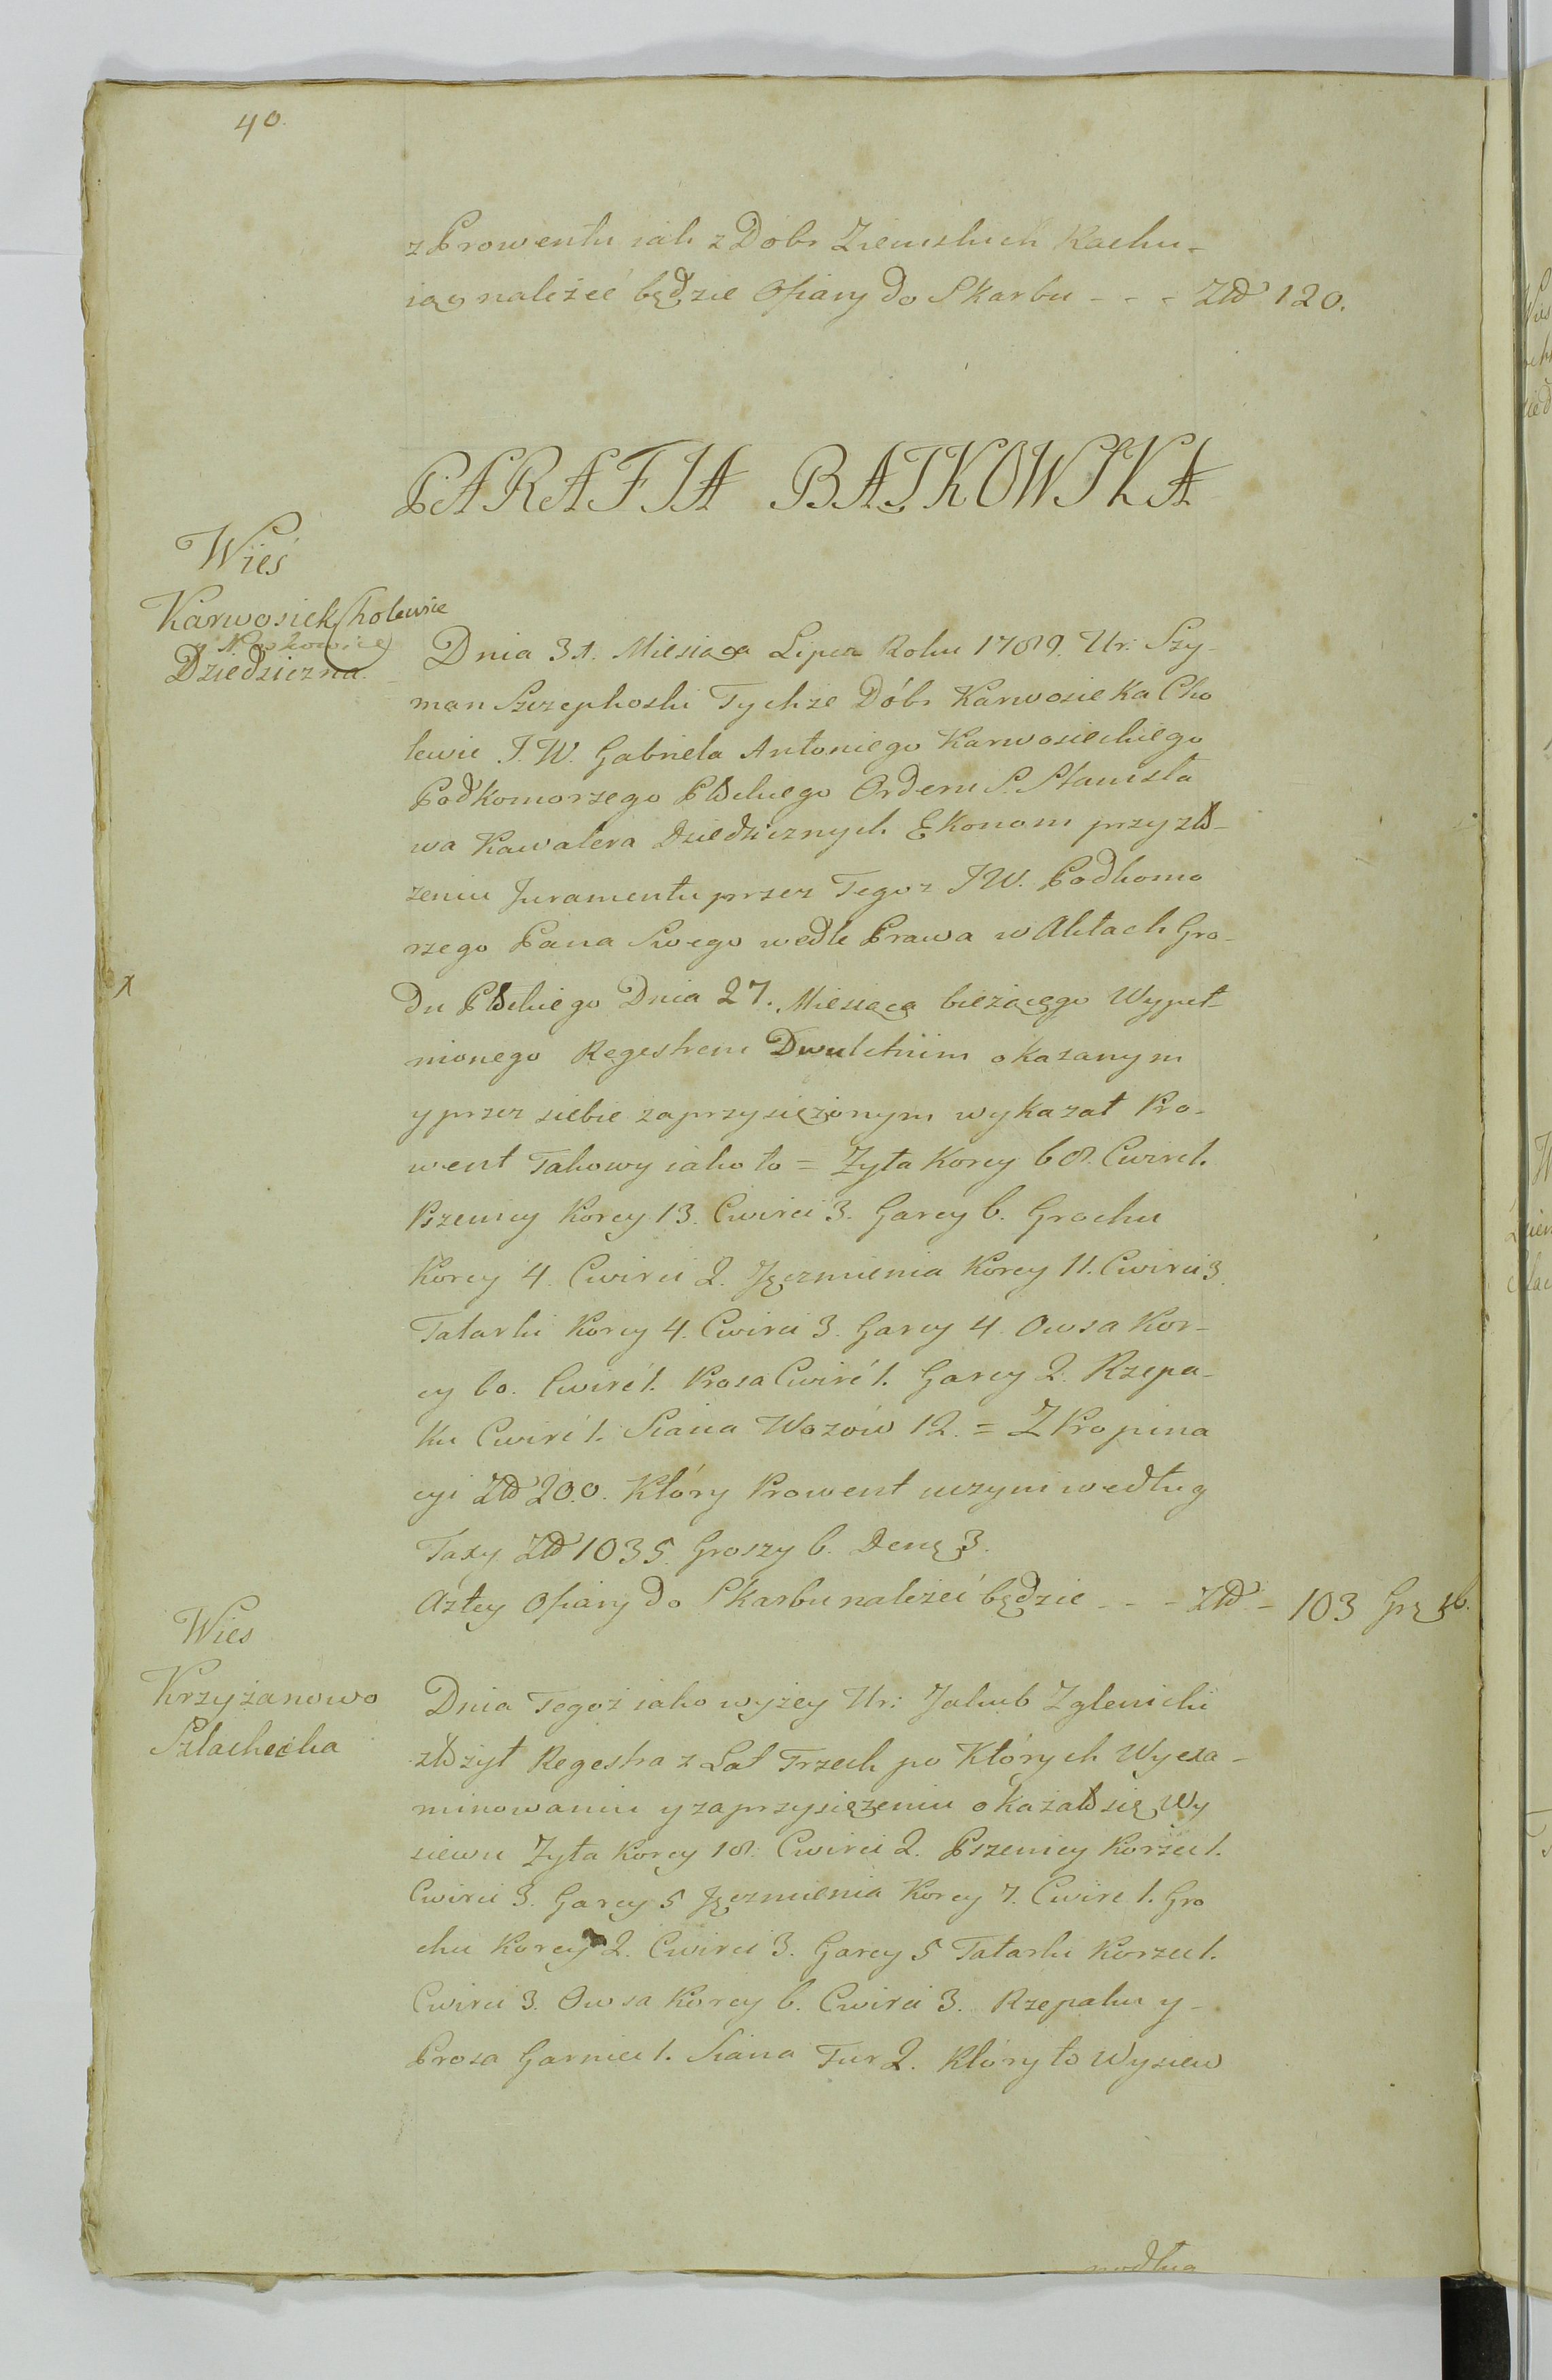 40.
z Prowentu iak z Dobr Ziemskich Rachu-
iąc należeć będzie Ofiary do Skarbu - - - Złł 120.
PARAFIA BĄTKOWSKA
Wieś
Karwosiek Cholewice
Dziedziczna.
Dnia 31. Miesiąca Lipca Roku 1789. Ur: Szy-
man Szczepkoski Tychże Dóbr Karwosieka Cho
lewic J. W. Gabriela Antoniego Karwosieckiego
Podkomorzego Płłckiego Orderu S. Stanisła
wa Kawalera Dziedzicznych Ekonom przy złło-
żeniu Juramentu przez Tegoż JW. Podkomo
rzego Pana Swego wedle Prawa w Aktach Gro-
du Płłckiego Dnia 27. Miesiąca bieżącego Wypeł-
nionego Regestrem Dwuletniim okazanym
y przez siebie zaprzysiężonym wykazał Pro-
went Takowy iako to = Zyta Korcy 68. Cwirć 1.
Pszenicy Korcy 13. Cwirci 3. Garcy 6. Grochu
Korcy 4. Cwirci 2. Jęczmienia Korcy 11. Cwirci 3.
Tatarki Korcy 4. Cwirci 3. Garcy 4. Owsa Kor-
cy 60. Cwirć 1. Prosa Cwirć 1. Garcy 2. Rzepa-
ku Cwirć 1. Siana Wozów 12. = Z Propina
cyi Złł 200. Który Prowent uczyni według
Taxy Złł 1035. Groszy 6. Denę 3.
A z tey Ofiary do Skarbu należeć będzie - - - Złł - 103 Grę 16.
Wies
Krzyżanowo
Szlachecka
Dnia Tegoż iako wyżey Ur: Jakub Zglenicki
złłożył Regestra z Lat Trzech po Których Wyexa-
minowaniu y zaprzysiężeniu okazałło się Wy
siewu Zyta Korcy 18. Cwirci 2. Pszenicy Korzec 1.
Cwirci 3. Garcy 5 Jęczmienia Korcy 7. Cwirć 1. Gro
chu Korcy 2. Cwirci 3. Garcy 5 Tatarki Korzec 1.
Cwirci 3. Owsa Korcy 6. Cwirci 3. Rzepaku y-
Prosa Garniec 1. Siana Fur 2. Który to Wysiew